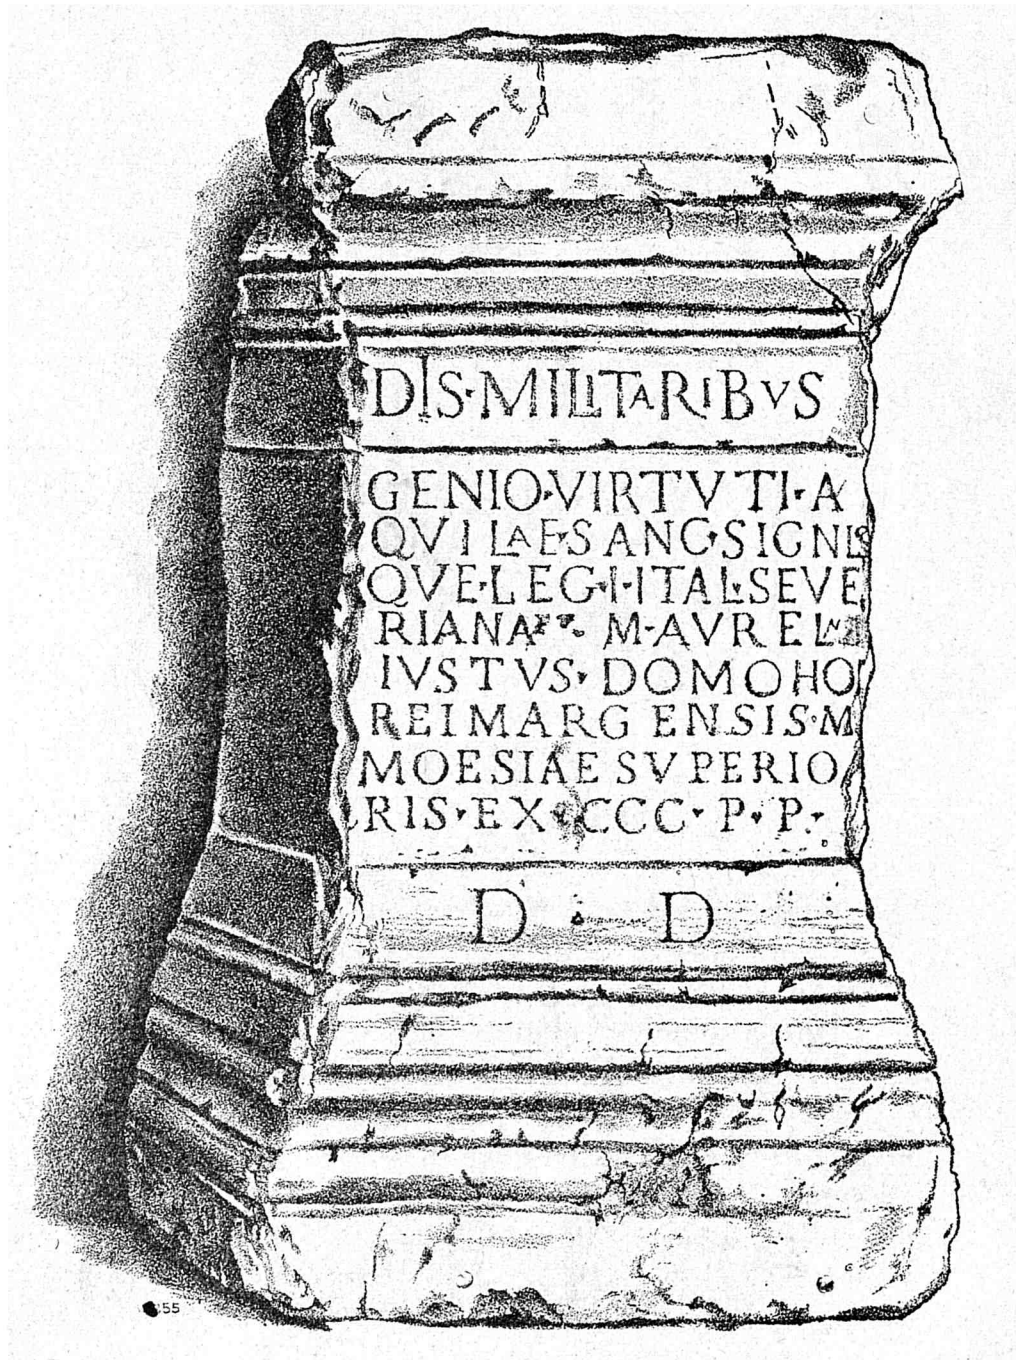 DIS·MILITARIBVS
GENIO·VIRTVTI·A
QVILAE·SANC·SIGNIS
QVE·LEG·I·ITAL·SEVE
RIANAE M·AVREL
IVSTVS·DOMO HO
REI MARGENSIS·M
MOESIAE SVPERIO
RIS·EX·CCC·P·P·
D · D
55